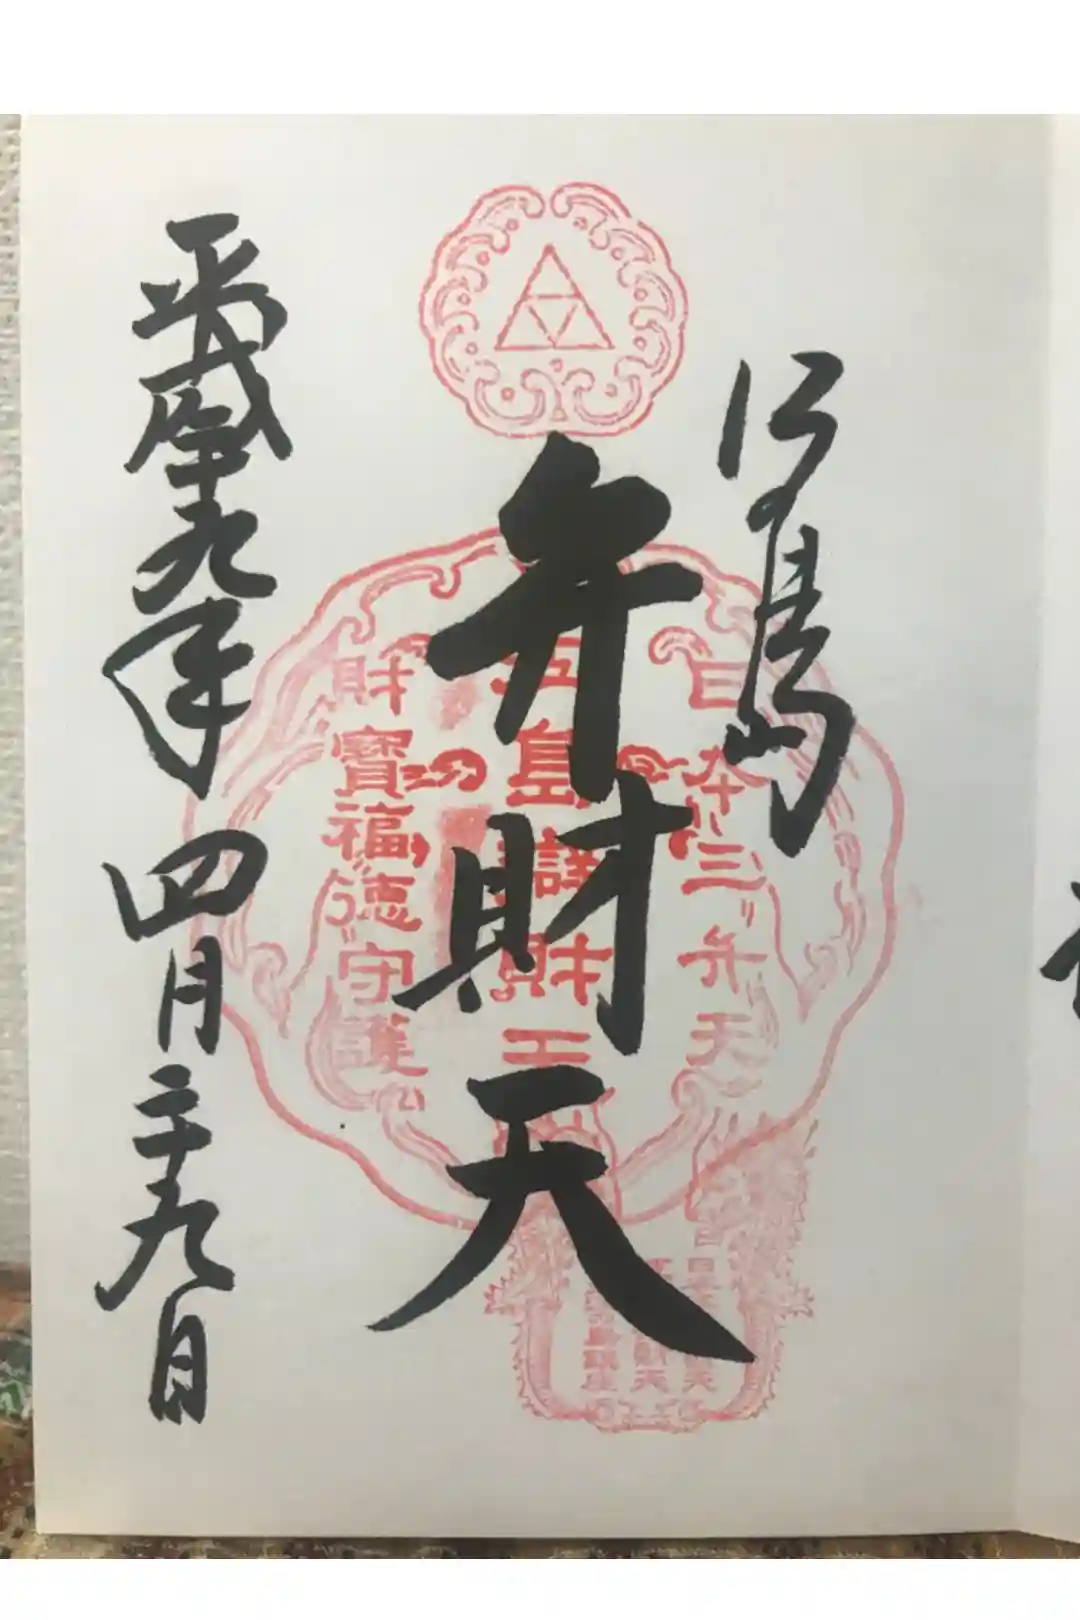 江島
弁財天
平成二十九年四月二十九日
日本三弁天
財寶福徳守護